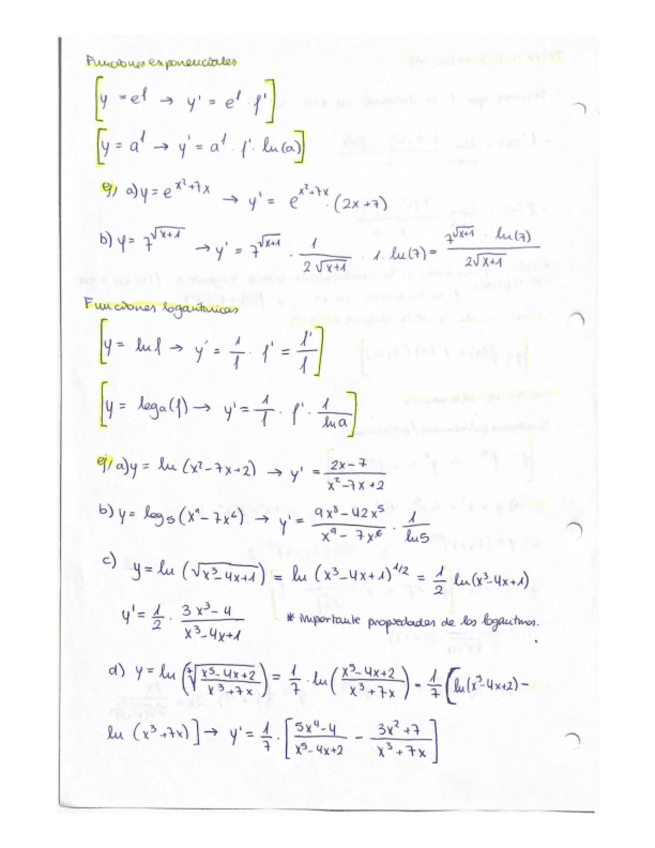 Funciones exponenciales
[y = e^f → y' = e^f · f']
[y = a^f → y' = a^f · f' · ln(a)]
ej) a) y = e^(x²+7x) → y' = e^(x²+7x) · (2x+7)
b) y = 7^√(x+1) → y' = 7^√(x+1) · 1/(2√(x+1)) · 1 · ln(7) = (7^√(x+1) · ln(7))/(2√(x+1))
Funciones logarítmicas
[y = ln f → y' = 1/f · f' = f'/f]
[y = loga(f) → y' = 1/f · f' · 1/ln a]
ej) a) y = ln (x²-7x+2) → y' = (2x-7)/(x²-7x+2)
b) y = log5(x⁹-7x⁶) → y' = (9x⁸-42x⁵)/(x⁹-7x⁶) · 1/ln5
c) y = ln (√(x³-4x+1)) = ln (x³-4x+1)^(1/2) = 1/2 ln(x³-4x+1)
y' = 1/2 · (3x³-4)/(x³-4x+1) * importante propiedades de los logaritmos.
d) y = ln (⁷√((x⁵-4x+2)/(x³+7x))) = 1/7 · ln((x⁵-4x+2)/(x³+7x)) = 1/7 [ln(x⁵-4x+2) -
ln (x³+7x)] → y' = 1/7 · [(5x⁴-4)/(x⁵-4x+2) - (3x²+7)/(x³+7x)]